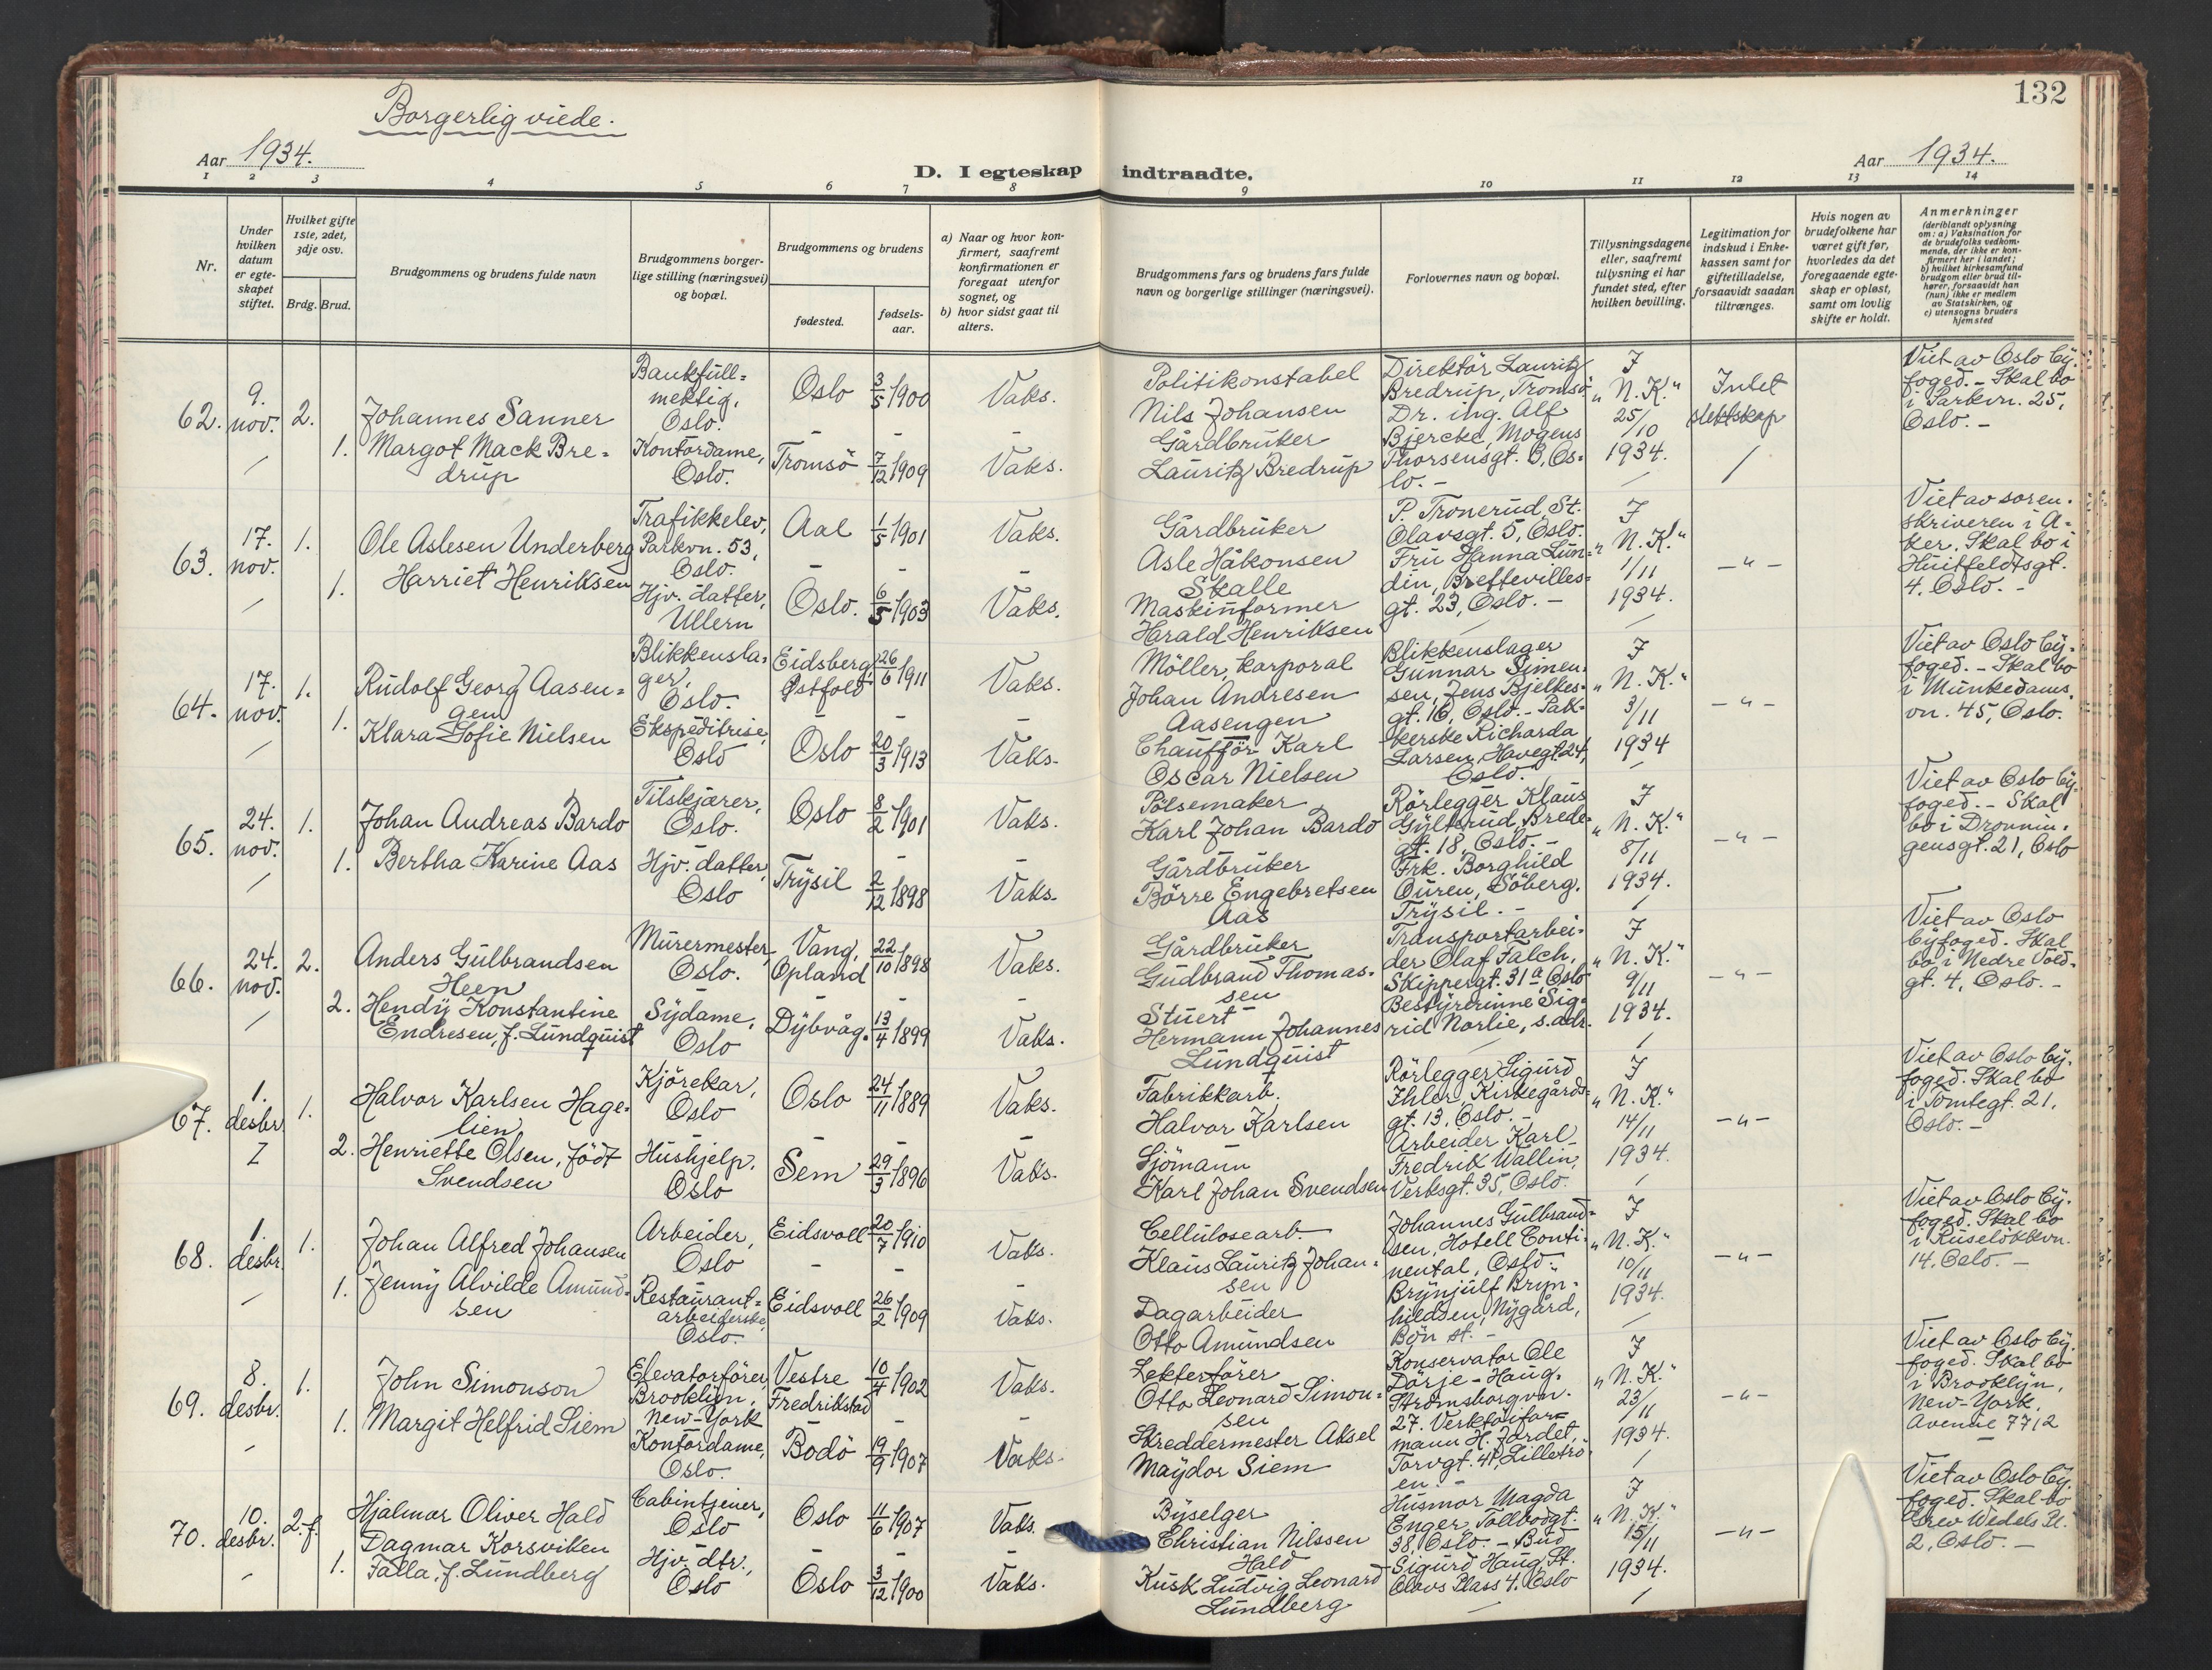 132
Borgerlig viede.
Aar 1934.
D. I egteskap indtraadte.
Aar 1934.
1 2 3 4 5 6 7 8 9 10 11 12 13 14
Nr.
Under hvilken datum er egteskapet stiftet.
Hvilket gifte 1ste, 2det, 3dje osv.
Brdg. Brud.
Brudgommens og brudens fulde navn
Brudgommens borgerlige stilling (næringsvei) og bopæl.
Brudgommens og brudens
fødested.
fødselsaar.
a) Naar og hvor konfirmert, saafremt konfirmationen er foregaat utenfor sognet, og
b) hvor sidst gaat til alters.
Brudgommens fars og brudens fars fulde navn og borgerlige stillinger (næringsvei).
Forlovernes navn og bopæl.
Tillysningsdagene eller, saafremt tillysning ei har fundet sted, efter hvilken bevilling.
Legitimation for indskud i Enkekassen samt for giftetilladelse, forsaavidt saadan tiltrænges.
Hvis nogen av brudefolkene har været gift før, hvorledes da det foregaaende egteskap er opløst, samt om lovlig skifte er holdt.
Anmerkninger (deriblandt oplysning om: a) Vaksination for de brudefolks vedkommende, der ikke er konfirmert her i landet; b) hvilket kirkesamfund brudgom eller brud tilhører, forsaavidt han (hun) ikke er medlem av Statskirken, og c) utensogns bruders hjemsted
62. 9. nov. 2.
Johannes Sanner
Bankfullmektig, Oslo.
Oslo 3/5 1900 Vaks.
Politikonstabel
Nils Johansen
1. Margot Mack Bredrup
Kontordame, Oslo.
Tromsö 7/12 1909 Vaks.
Gårdbruker
Lauritz Bredrup
Direktör Lauritz Bredrup, Tromsö
Dr. ing. Alf Bjercke, Mogens Thorsensgt. 8, Oslo. -
I "N. K." 25/10 1934.
Intet slektskap
Viet av Oslo byfoged. - Skal bo i Parkvn. 25, Oslo. -
63. 17. nov. 1.
Ole Aslesen Underberg
Trafikkelev, Parkvn. 53, Oslo.
Aal 1/5 1901 Vaks.
Gårdbruker
Asle Håkonsen Skalle
1. Harriet Henriksen
Hjv. datter, Ullern
Oslo. 6/5 1903 Vaks.
Maskinformer
Harald Henriksen
P. Tronerud, St. Olavsgt. 5, Oslo.
Fru Hanna Lundin, Breftevillesgt. 23, Oslo. -
I "N. K." 1/11 1934.
- " -
Viet av sorenskriveren i Aker. Skal bo i Huitfeldtsgt. 4. Oslo. -
64. 17. nov. 1.
Rudolf Georg Aasengen
Blikkenslager, Oslo.
Eidsberg, Østfold 26/6 1911 Vaks.
Möller, karporal
Johan Andresen Aasengen
1. Klara Sofie Nielsen
Ekspeditrise, Oslo
Oslo 20/3 1913 Vaks.
Chaufför Karl Oscar Nielsen
Blikkenslager Gunnar Simensen, Jens Bjelkesgt. 16, Oslo. - Pakkerske Richarda Larsen, Havegt. 24, Oslo.
I "N. K." 3/11 1934
- " -
Viet av Oslo byfoged. - Skal bo i Munkedamsvn. 45, Oslo.
65. 24. nov. 1.
Johan Andreas Bardo
Tilskjærer, Oslo.
Oslo 8/2 1901 Vaks.
Pölsemaker
Karl Johan Bardo
1. Bertha Karine Aas
Hjv. datter, Oslo
Trysil 2/12 1898 Vaks.
Gårdbruker
Börre Engebretsen Aas
Rörlegger Klaus Gylterud, Bredegt. 18, Oslo. -
Frk. Borghild Ouren, Söberg. Trysil. -
I "N. K." 8/11 1934.
- " -
Viet av Oslo byfoged. - Skal bo i Dronningensgt. 21, Oslo
66. 24. nov. 2.
Anders Gulbrandsen Heen
Murermester, Oslo.
Vang, Opland 22/10 1898 Vaks.
Gårdbruker
Gudbrand Thomassen
2. Hendy Konstantine Endresen, f. Lundquist
Sydame, Oslo
Dybvåg. 13/4 1899 Vaks.
Stuert
Hermann Johannes Lundquist
Transportarbeider Olaf Falch, Skippergt. 31a Oslo
Bestyrerinne Sigrid Norlie, s. adr.
I "N. K." 9/11 1934.
- " -
Viet av Oslo byfoged. Skal bo i Nedre Voldgt. 4, Oslo. -
67. 1. desbr. 1.
Halvor Karlsen Hagelien
Kjörekar, Oslo
Oslo 24/11 1889 Vaks.
Fabrikkarb.
Halvor Karlsen
2. Henriette Olsen, födt Svendsen
Hushjelp, Oslo
Sem 29/3 1896 Vaks.
Sjömann
Karl Johan Svendsen
Rörlegger Sigurd Ihler, Kirkegårdsgt. 13, Oslo. -
Arbeider Karl Fredrik Wallin, Verksgt. 35, Oslo.
I "N. K." 14/11 1934.
- " -
Viet av Oslo byfoged. Skal bo i Tomtegt. 21, Oslo. -
68. 1. desbr. 1.
Johan Alfred Johansen
Arbeider, Oslo
Eidsvoll 20/7 1910 Vaks.
Cellulosearb.
Klaus Lauritz Johansen
1. Jenny Alvilde Amundsen
Restaurantarbeiderske, Oslo.
Eidsvoll 26/2 1909 Vaks.
Dagarbeider
Otto Amundsen
Johannes Gulbrandsen, Hotell Continental, Oslo.
Brynjulf Brynhildsen, Nygård, Bön st. -
I "N. K." 10/11 1934.
- " -
Viet av Oslo byfoged. Skal bo i Ruselökkvn. 14, Oslo. -
69. 8. desbr. 1.
John Simonson
Elevatorförer, Brooklyn, New-York
Vestre Fredrikstad 10/4 1902 Vaks.
Lekterfører
Otto Leonard Simonsen
1. Margit Helfrid Siem
Kontordame, Oslo.
Bodö 19/9 1907 Vaks.
Skreddermester Aksel Maydor Siem
Konservator Ole Dörje-Haug, Strömsborgvn. 27. Verktöiformann H. Jordet, Torvgt. 4, Lilleströen. -
I "N. K." 23/11 1934.
- " -
Viet av Oslo byfoged. Skal bo i Brooklyn, New-York, Avenue 7712
70. 10. desbr. 2. f.
Hjalmar Oliver Hald
Cabintjener, Oslo
Oslo 11/6 1907 Vaks.
Byselger
Christian Nilssen Hald
1. Dagmar Korsviken Falla, f. Lundberg
Hjv. dtr., Oslo
Oslo 3/12 1900 Vaks.
Kusk Ludvig Leonard Lundberg
Husmor Magda Enger, Tollbodgt. 38, Oslo. - Bud Sigurd Haug, St. Olavs Plass 4. Oslo
I "N. K." 15/11 1934.
- " -
Viet av Oslo byfoged. Skal bo Grev Wedels Pl. 2, Oslo. -